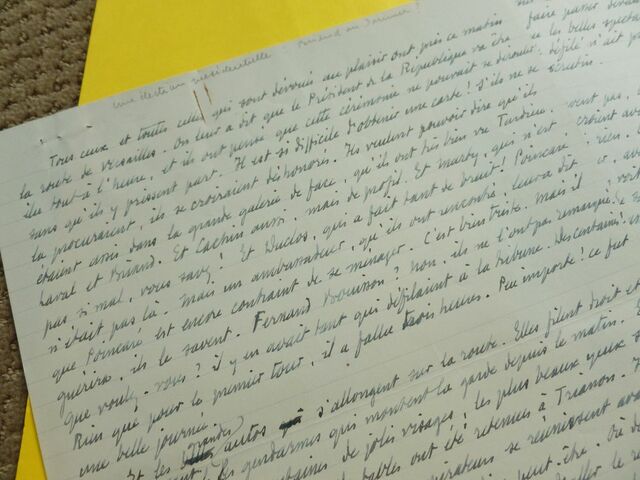 une élection présidentielle
Tous ceux et toutes celles qui sont dévoués au plaisir ont pris ce matin
la route de Versailles. On leur a dit que le Président de la République va être
élu tout à l'heure, et ils ont pensé que cette cérémonie ne pouvait se dérouler,
sans qu'ils y prissent part. Il est si difficile d'obtenir une carte! S'ils ne se
la procuraient, ils se croiraient déshonorés. Ils veulent pouvoir dire qu'ils
étaient assis dans la grande galerie de face, qu'ils ont très bien vu Tardieu,
Laval et Briand. Et Cachin aussi, mais de profil. Et Marty, qui n'est
pas si mal, vous savez! Et Duclos, qui a fait tant de bruit! Poincaré
n'était pas là. Mais un ambassadeur, qu'ils ont rencontré, leur a dit
que Poincaré est encore contraint de se ménager. C'est bien triste. Mais il
guérira, ils le savent. Fernand Bouisson? Non, ils ne l'ont pas remarqué.
Que voulez-vous? il y en avait tant qui défilaient à la tribune. Des centaines!
Rien que pour le premier tour, il a fallu trois heures. Peu importe! ce fut
une belle journée.
Et les grandes autos s'allongent sur la route. Elles filent droit et
les gendarmes qui montent la garde depuis le matin.
de jolis visages; les plus beaux yeux
tables ont été retenues à Trianon.
se réunissent
peut-être. Où
faire passer
les belles
défilé n'ait
scrutin.
veut pas,
croient
rien.